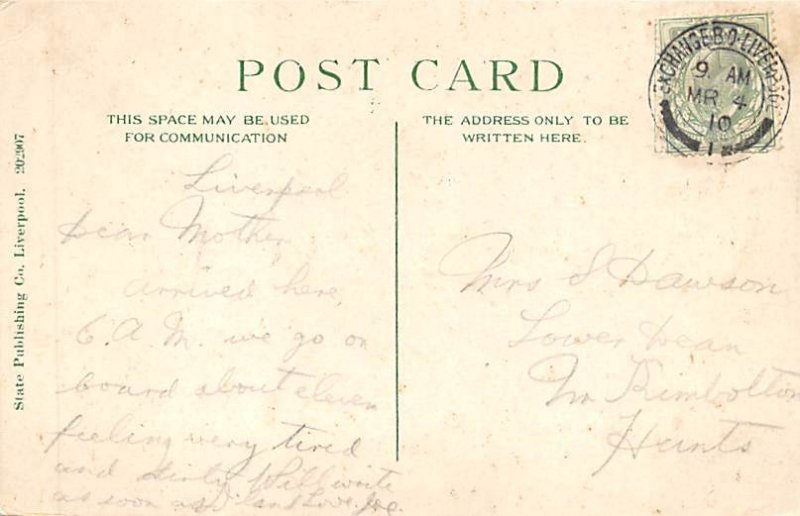 POST CARD
THIS SPACE MAY BE USED
FOR COMMUNICATION
THE ADDRESS ONLY TO BE
WRITTEN HERE.
EXCHANGE B.O. LIVERPOOL
9 AM
MR 4
10
State Publishing Co. Liverpool. 202907
Liverpool
Dear Mother
arrived here
6. A.M. we go on
board about eleven
feeling very tired
and dirty Will write
as soon as I can Love Joe
Mrs S Dawson
Lower Dean
Nr Kimbolton
Hunts